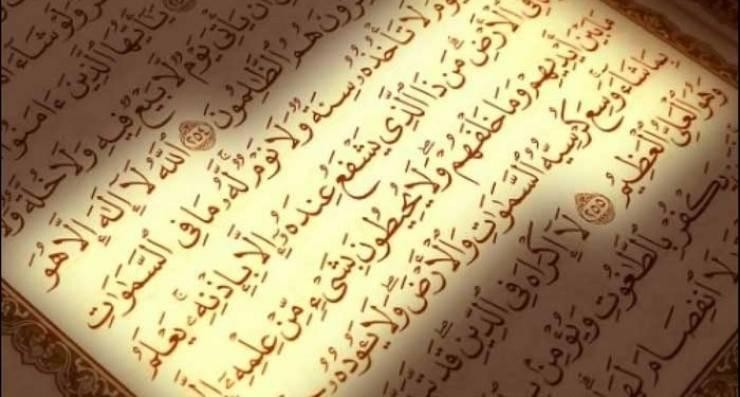 وَلَوْ شَآءَ
يَٰٓأَيُّهَا ٱلَّذِينَ ءَامَنُوٓا۟
أَن يَأْتِىَ يَوْمٌ لَّا بَيْعٌ فِيهِ وَلَا خُلَّةٌ وَلَا
هُمُ ٱلظَّٰلِمُونَ ٢٥٤ ٱللَّهُ لَآ إِلَٰهَ إِلَّا هُوَ
لَا تَأْخُذُهُۥ سِنَةٌ وَلَا نَوْمٌ لَّهُۥ مَا فِى ٱلسَّمَٰوَٰتِ
فِى ٱلْأَرْضِ مَن ذَا ٱلَّذِى يَشْفَعُ عِندَهُۥٓ إِلَّا بِإِذْنِهِۦ يَعْلَمُ
مَا بَيْنَ أَيْدِيهِمْ وَمَا خَلْفَهُمْ وَلَا يُحِيطُونَ بِشَىْءٍ مِّنْ عِلْمِهِۦٓ إِلَّا
بِمَا شَآءَ وَسِعَ كُرْسِيُّهُ ٱلسَّمَٰوَٰتِ وَٱلْأَرْضَ وَلَا يَـُٔودُهُۥ
وَهُوَ ٱلْعَلِىُّ ٱلْعَظِيمُ ٢٥٥ لَآ إِكْرَاهَ فِى ٱلدِّينِ قَد
يَكْفُرْ بِٱلطَّٰغُوتِ وَيُؤْمِنۢ
لَا ٱنفِصَامَ لَهَا